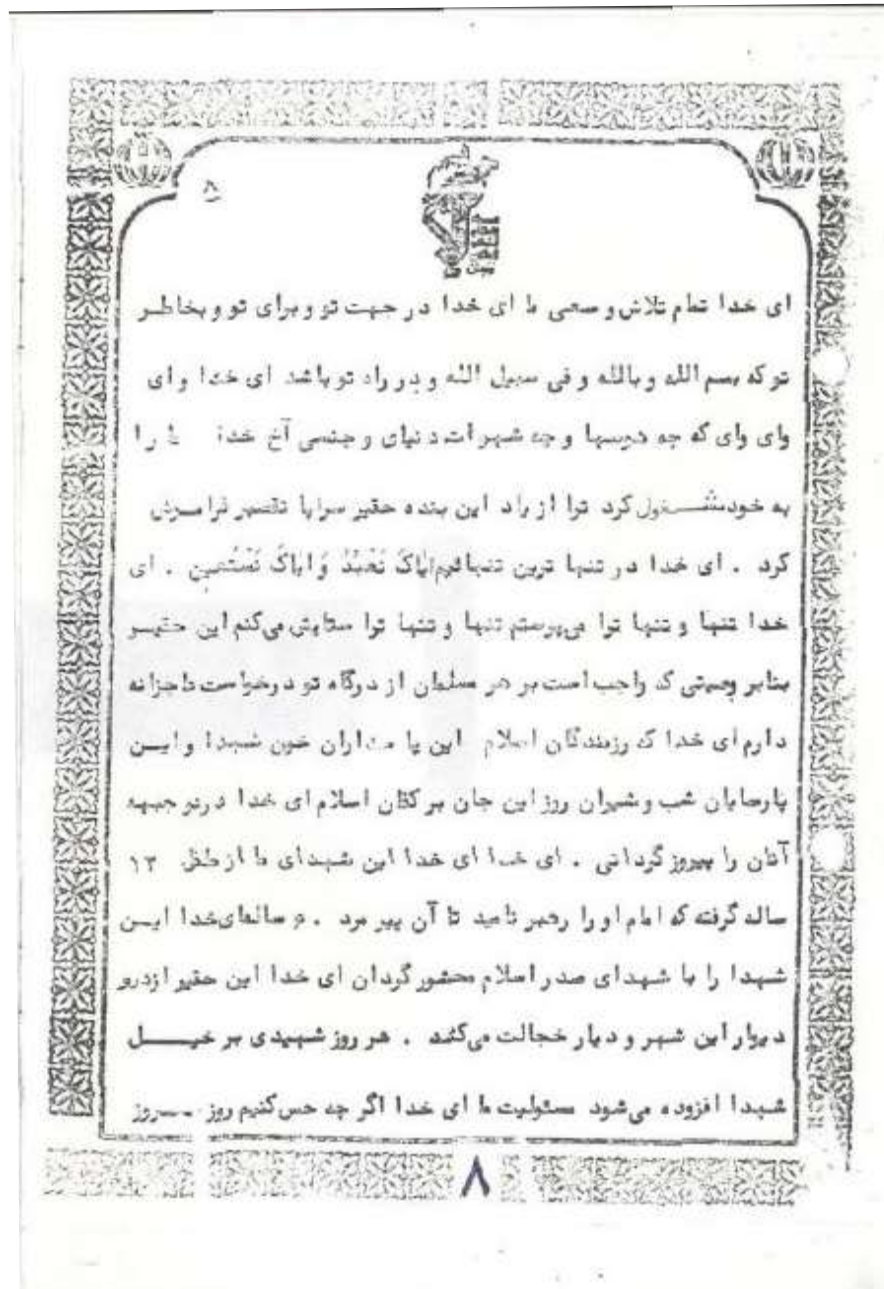 ۸
ای خدا تمام تلاش و سعی ما ای خدا در جهت تو و برای تو و بخاطر
تو که بسم الله و بالله و فی سبیل الله و در راه تو باشد ای خدا وای
وای وای که چه هوسها و چه شهوات دنیای و جنسی آخ خدا ما را
به خود مشغول کرد ترا از یاد این بنده حقیر سراپا تقصیر فراموش
کرد . ای خدا در تنها ترین تنهائیم ایاکَ نَعْبُدُ وَ ایاکَ نَسْتَعین . ای
خدا تنها و تنها ترا می‌پرستم تنها و تنها ترا ستایش می‌کنم این حقیر
بنابر وصیتی که واجب است بر هر مسلمان از درگاه تو درخواست عاجزانه
دارم ای خدا که رزمندگان اسلام این پاسداران خون شهدا و ایــن
پارسایان شب و شیران روز این جان بر کفان اسلام ای خدا در هر جبهه
آنان را پیروز گردانی . ای خدا ای خدا این شهدای ما از طفل ۱۳
ساله گرفته که امام او را رهبر نامید تا آن پیر مرد . ساله‌ای خدا ایــن
شهدا را با شهدای صدر اسلام محشور گردان ای خدا این حقیر از در و
دیوار این شهر و دیار خجالت می‌کشد . هر روز شهیدی بر خیــــل
شهدا افزوده می‌شود مسئولیت ما ای خدا اگر چه حس کنیم روز بــروز
۸